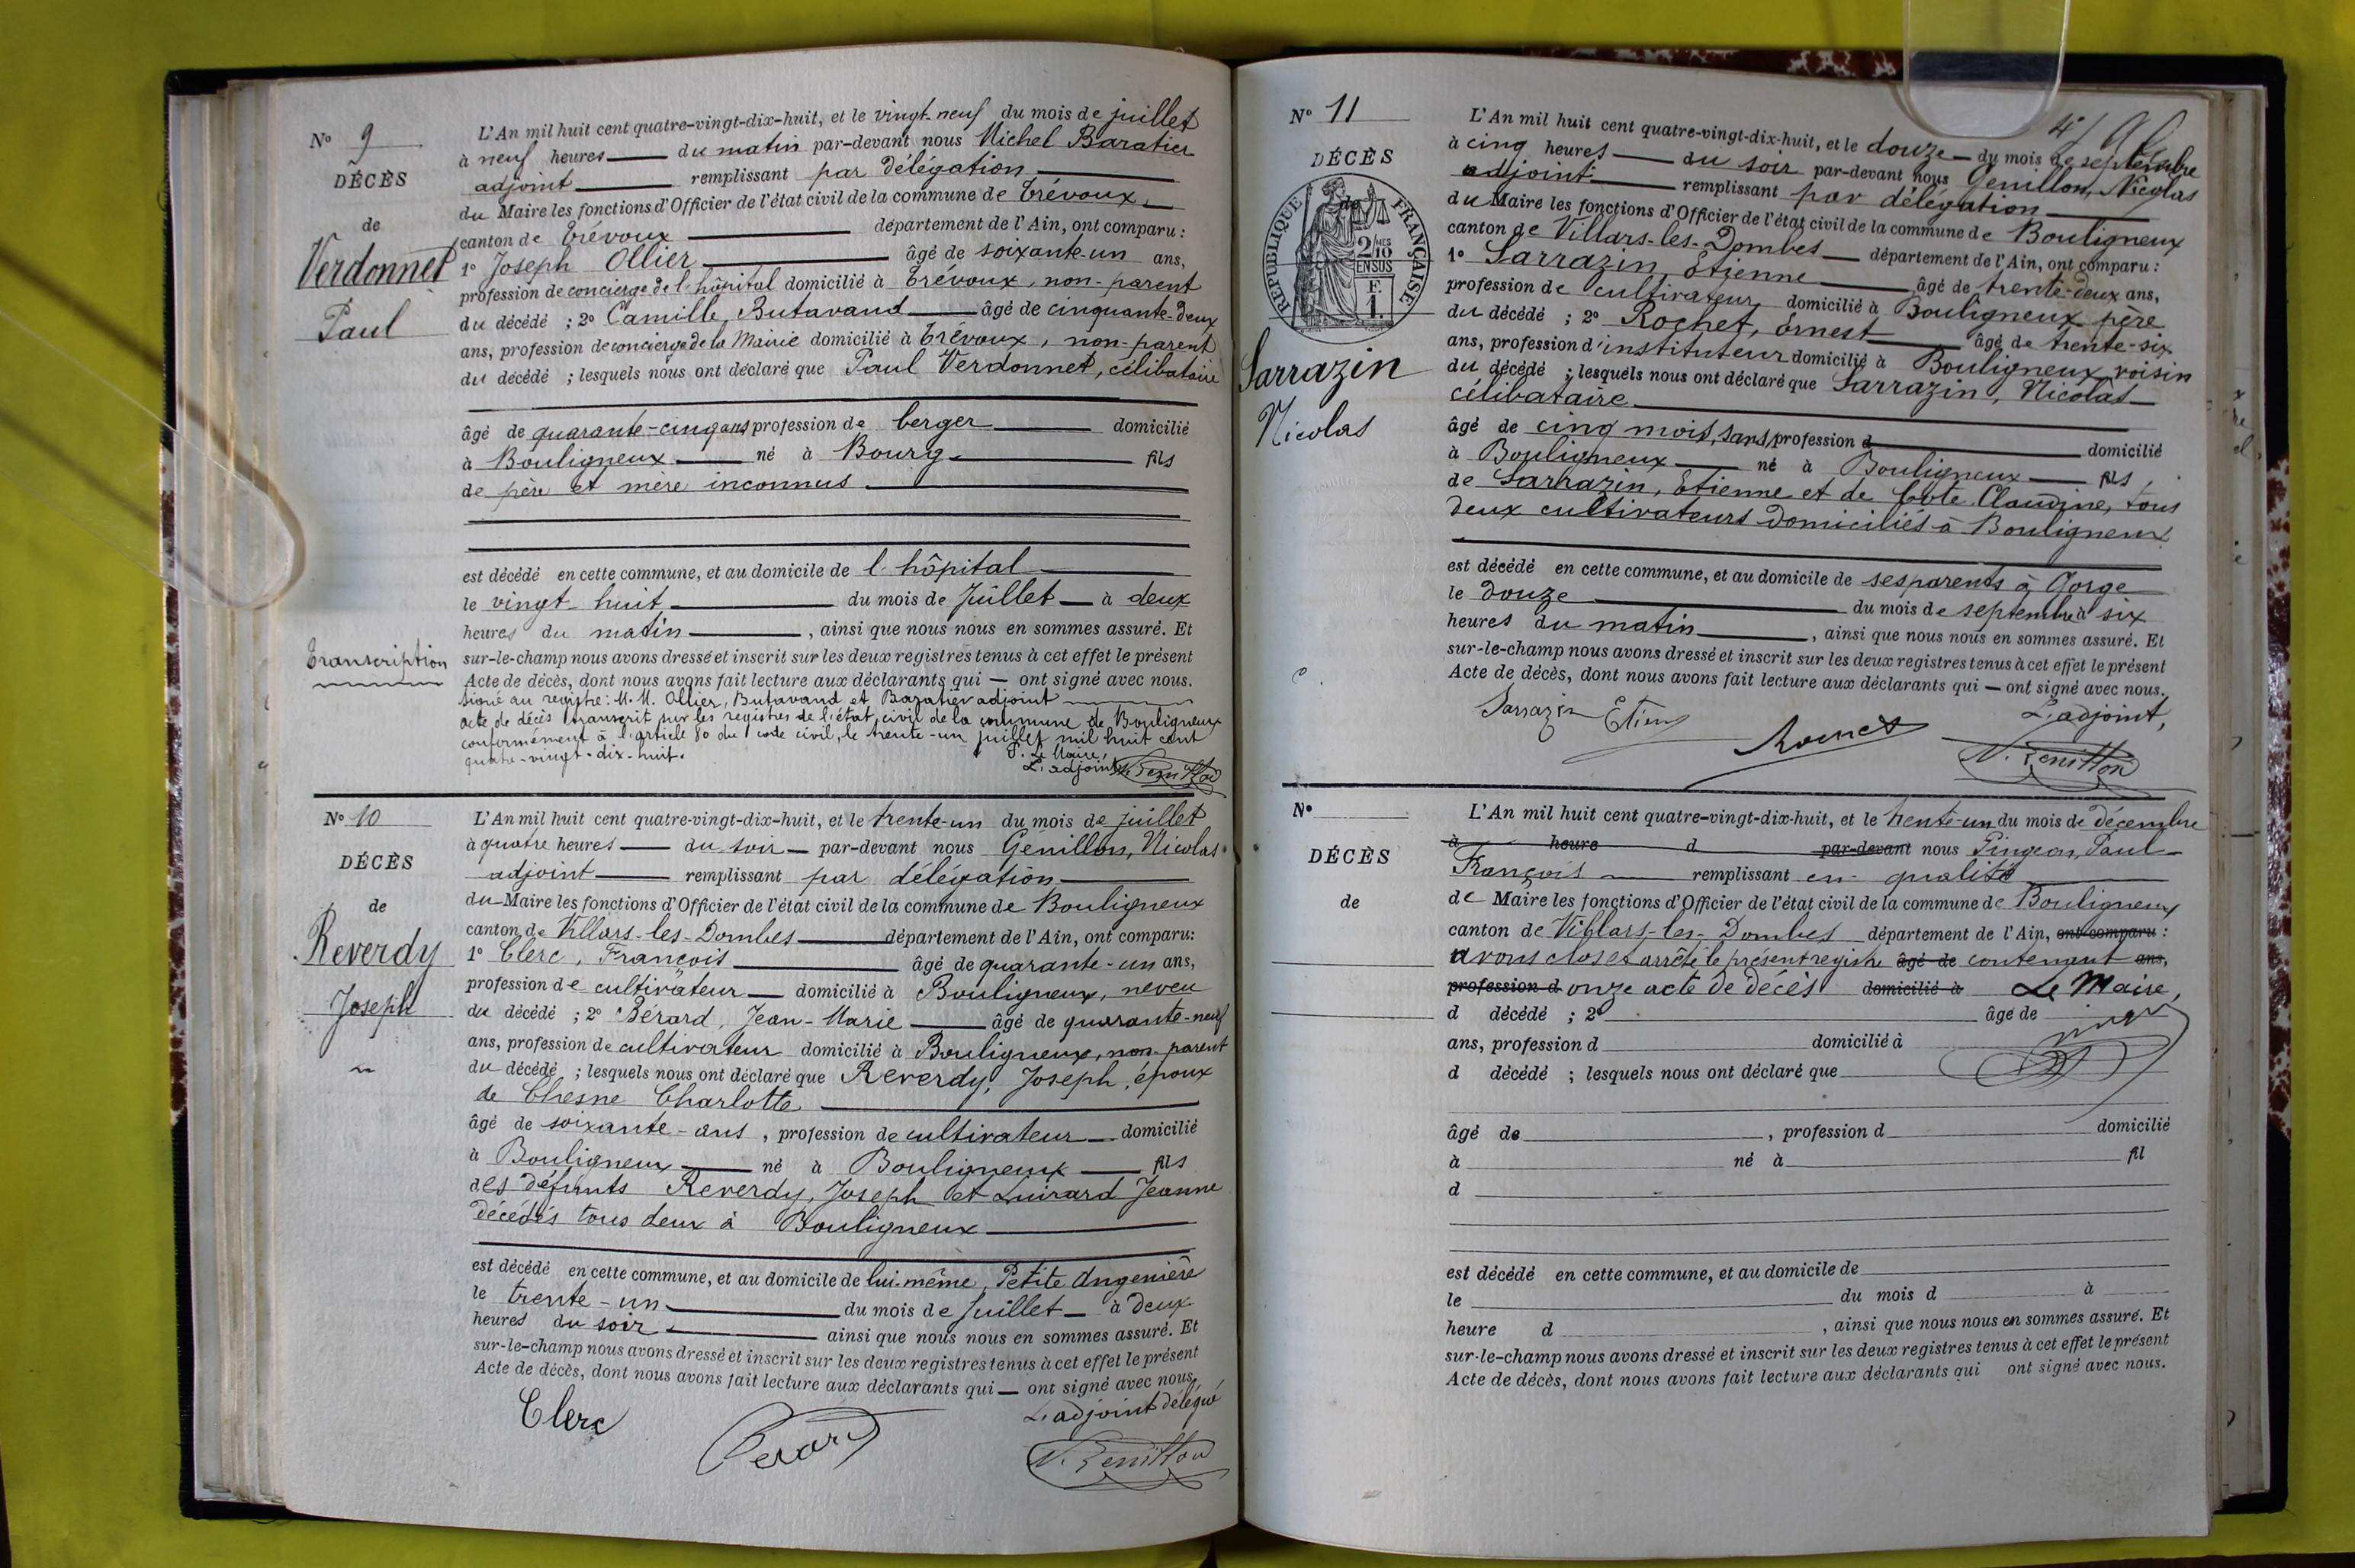 N° 9
DÉCÈS
de
Verdonnet
Paul
Transcription
L'An mil huit cent quatre-vingt-dix-huit, et le vingt-neuf du mois de juillet
à neuf heures du matin par-devant nous Michel Baratier
adjoint remplissant par délégation
du Maire les fonctions d'Officier de l'état civil de la commune de Trévoux
canton de Trévoux département de l'Ain, ont comparu :
1° Joseph Ollier âgé de soixante-un ans,
profession de concierge de l'hôpital domicilié à Trévoux, non-parent
du décédé ; 2° Camille Butavand âgé de cinquante-deux
ans, profession de concierge de la Mairie domicilié à Trévoux, non-parent
du décédé ; lesquels nous ont déclaré que Paul Verdonnet, célibataire
âgé de quarante-cinq ans profession de berger domicilié
à Bouligneux né à Bourg fils
de père et mère inconnus
est décédé en cette commune, et au domicile de l'hôpital
le vingt-huit du mois de Juillet à deux
heures du matin, ainsi que nous nous en sommes assuré. Et
sur-le-champ nous avons dressé et inscrit sur les deux registres tenus à cet effet le présent
Acte de décès, dont nous avons fait lecture aux déclarants qui — ont signé avec nous.
Signé au registre : M. M. Ollier, Butavand et Baratier adjoint
acte de décès transcrit sur les registres de l'état civil de la commune de Bouligneux
conformément à l'article 80 du code civil, le trente-un juillet mil huit cent
quatre-vingt-dix-huit.
P. Le Maire,
L'adjoint N. Genillon
N° 10
DÉCÈS
de
Reverdy
Joseph
L'An mil huit cent quatre-vingt-dix-huit, et le trente-un du mois de juillet
à quatre heures du soir par-devant nous Génillon, Nicolas
adjoint remplissant par délégation
du Maire les fonctions d'Officier de l'état civil de la commune de Bouligneux
canton de Villars-les-Dombes département de l'Ain, ont comparu :
1° Clerc, François âgé de quarante-un ans,
profession de cultivateur domicilié à Bouligneux, neveu
du décédé ; 2° Bérard, Jean-Marie âgé de quarante-neuf
ans, profession de cultivateur domicilié à Bouligneux, non-parent
du décédé ; lesquels nous ont déclaré que Reverdy, Joseph, époux
de Chesne Charlotte
âgé de soixante-ans, profession de cultivateur domicilié
à Bouligneux né à Bouligneux fils
des défunts Reverdy, Joseph et Luirard Jeanne
décédés tous deux à Bouligneux
est décédé en cette commune, et au domicile de lui-même, Petite Angenière
le trente-un du mois de Juillet à deux
heures du soir ainsi que nous nous en sommes assuré. Et
sur-le-champ nous avons dressé et inscrit sur les deux registres tenus à cet effet le présent
Acte de décès, dont nous avons fait lecture aux déclarants qui — ont signé avec nous,
L'adjoint délégué
Clerc Berard N. Genillon
N° 11
DÉCÈS
de
RÉPUBLIQUE FRANÇAISE
2/10 MES
EN SUS
F.
1.
Sarrazin
Nicolas
L'An mil huit cent quatre-vingt-dix-huit, et le douze du mois de septembre
à cinq heures du soir par-devant nous Genillon, Nicolas
adjoint remplissant par délégation
du Maire les fonctions d'Officier de l'état civil de la commune de Bouligneux
canton de Villars-les-Dombes département de l'Ain, ont comparu :
1° Sarrazin, Etienne âgé de trente-deux ans,
profession de cultivateur domicilié à Bouligneux père
du décédé ; 2° Rochet, Ernest âgé de trente-six
ans, profession d'instituteur domicilié à Bouligneux, voisin
du décédé ; lesquels nous ont déclaré que Sarrazin, Nicolas
célibataire
âgé de cinq mois, sans profession d domicilié
à Bouligneux né à Bouligneux fils
de Sarrazin, Etienne et de Cote Claudine, tous
deux cultivateurs domiciliés à Bouligneux
est décédé en cette commune, et au domicile de ses parents à Gorge
le douze du mois de septembre à six
heures du matin, ainsi que nous nous en sommes assuré. Et
sur-le-champ nous avons dressé et inscrit sur les deux registres tenus à cet effet le présent
Acte de décès, dont nous avons fait lecture aux déclarants qui — ont signé avec nous.
Sarrazin Etien L'adjoint,
N. Genillon
N°
DÉCÈS
de
L'An mil huit cent quatre-vingt-dix-huit, et le trente-un du mois de décembre
à heure d par-devant nous Pingeon, Paul
François remplissant en qualité
de Maire les fonctions d'Officier de l'état civil de la commune de Bouligneux
canton de Villars-les-Dombes département de l'Ain, ont comparu :
avons clos et arrêté le présent registre âgé de contenant ans,
profession d onze acte de décès domicilié à Le Maire,
d décédé ; 2° âgé de
ans, profession d domicilié à
d décédé ; lesquels nous ont déclaré que
âgé de , profession d domicilié
à né à fil
d
est décédé en cette commune, et au domicile de
le du mois d à
heure d , ainsi que nous nous en sommes assuré. Et
sur-le-champ nous avons dressé et inscrit sur les deux registres tenus à cet effet le présent
Acte de décès, dont nous avons fait lecture aux déclarants qui ont signé avec nous.